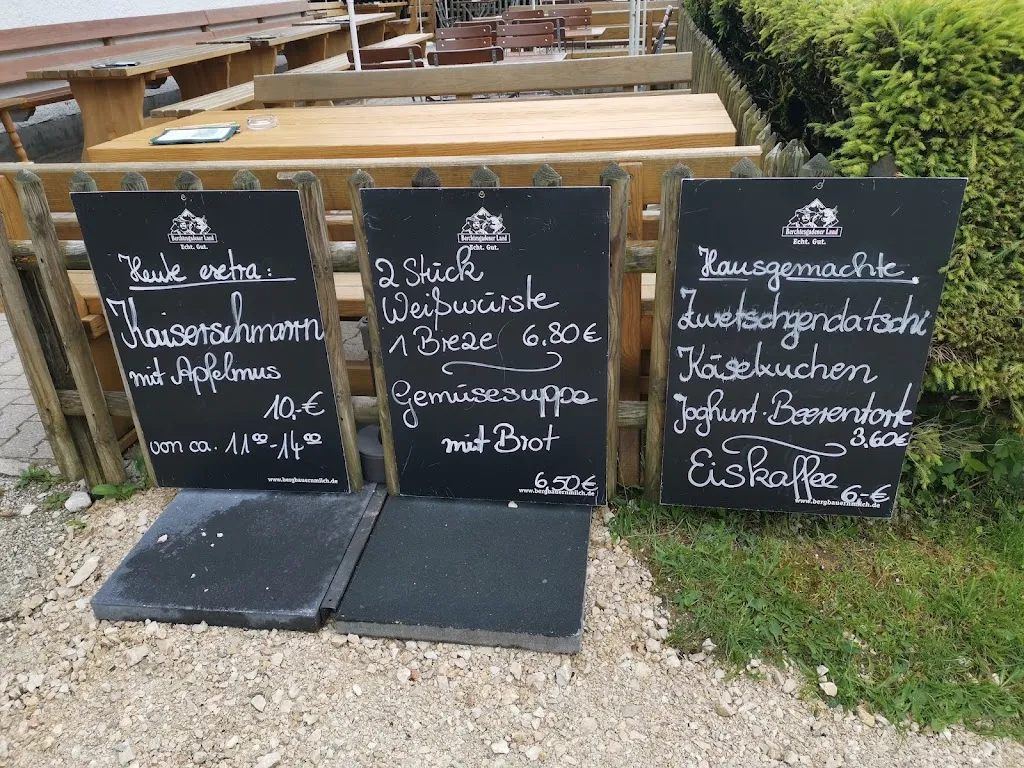 Berchtesgadener Land
Echt. Gut.
Heute extra:
Kaiserschmarrn
mit Apfelmus
10,-€
von ca. 11⁰⁰-14⁰⁰
www.bergbauernmilch.de
Berchtesgadener Land
Echt. Gut.
2 Stück
Weißwürste
1 Breze 6,80€
Gemüsesuppe
mit Brot
6,50€
www.bergbauernmilch.de
Berchtesgadener Land
Echt. Gut.
Hausgemachte
Zwetschgendatschi
Käsekuchen
Joghurt-Beerentorte
3,60€
Eiskaffee
6,-€
www.bergbauernmilch.de